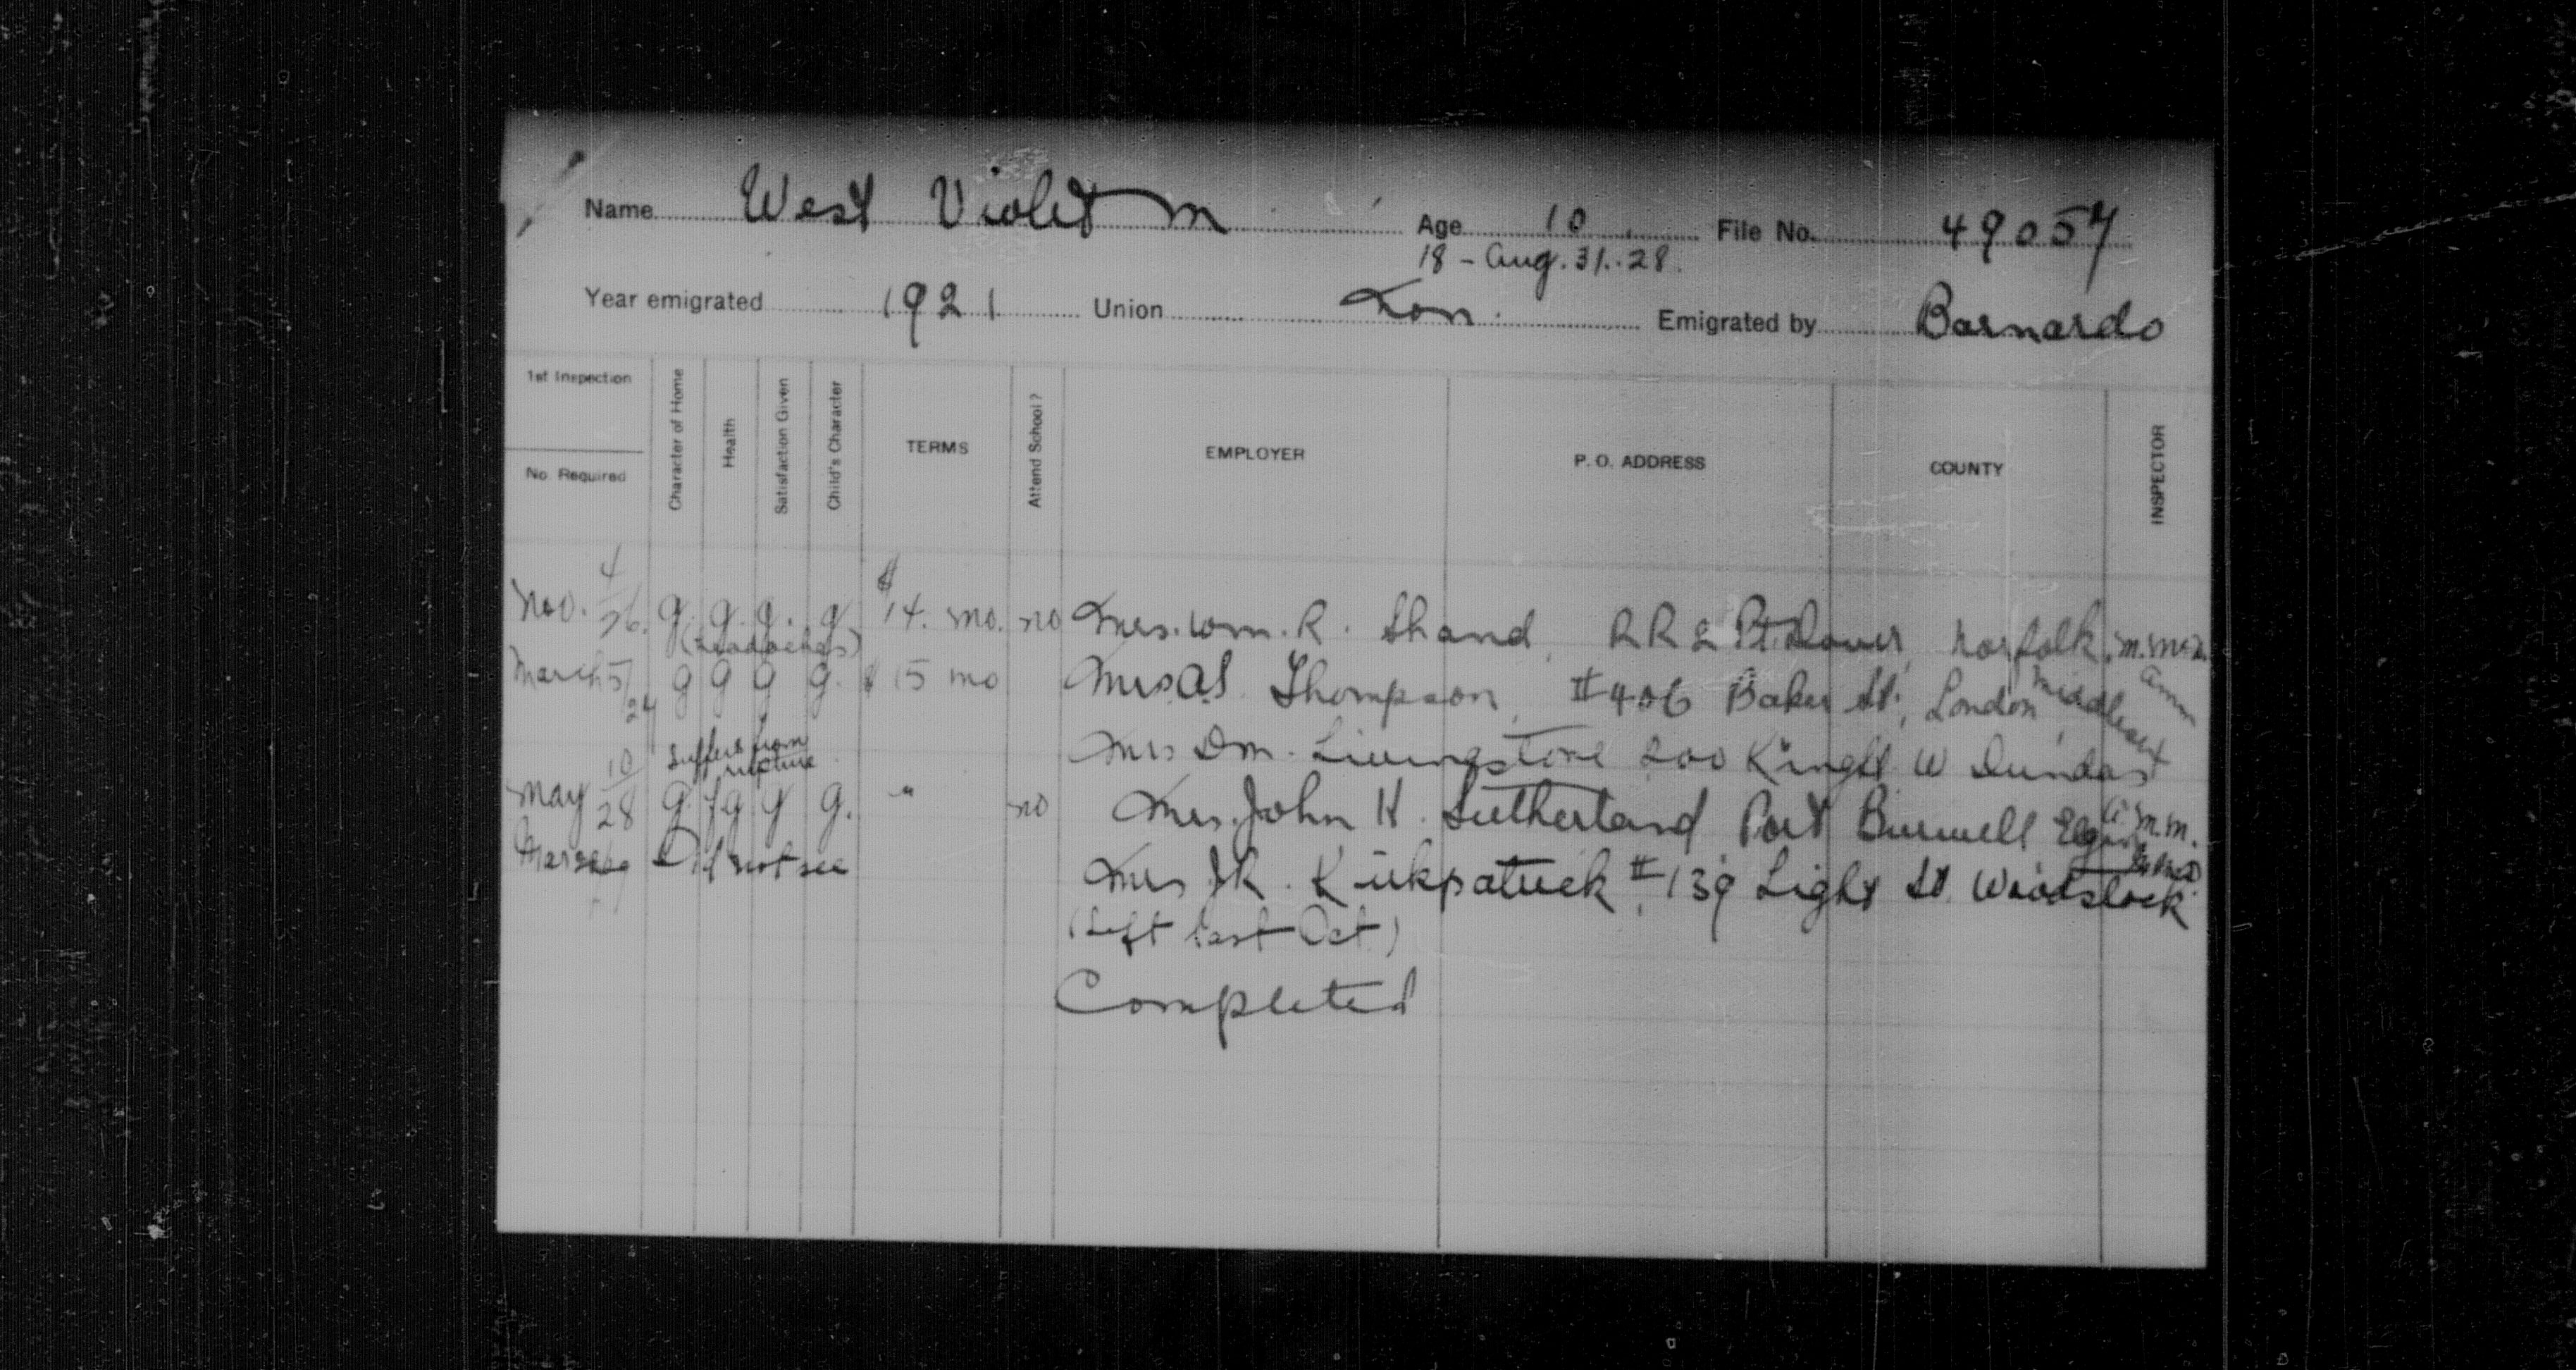 Name West Violet M Age 10 File No. 49057
18 - Aug. 31. 28.
Year emigrated 1921 Union Lon. Emigrated by Barnardo
1st Inspection
No. Required
Character of Home
Health
Satisfaction Given
Child's Character
TERMS
Attend School?
EMPLOYER
P. O. ADDRESS
COUNTY
INSPECTOR
Nov. 4/26. g. g. g. g $14. mo. no Mrs. Wm. R. Shand, RR 2 Pt. Dover, Norfolk.
(Headaches)
March 5/27 g g g g. $15 mo Mrs A.S. Thompson, #406 Baker St., London, Middlesex
Mrs D M. Livingstone 200 King St W Dundas
Suffers from rupture
May 10/28 g. fg g g. " no Mrs. John K. Sutherland Port Burwell Elgin M.M.
Did not see Mrs J R. Kirkpatrick #139 Light St. Woodstock
(Left last Oct.)
Completed